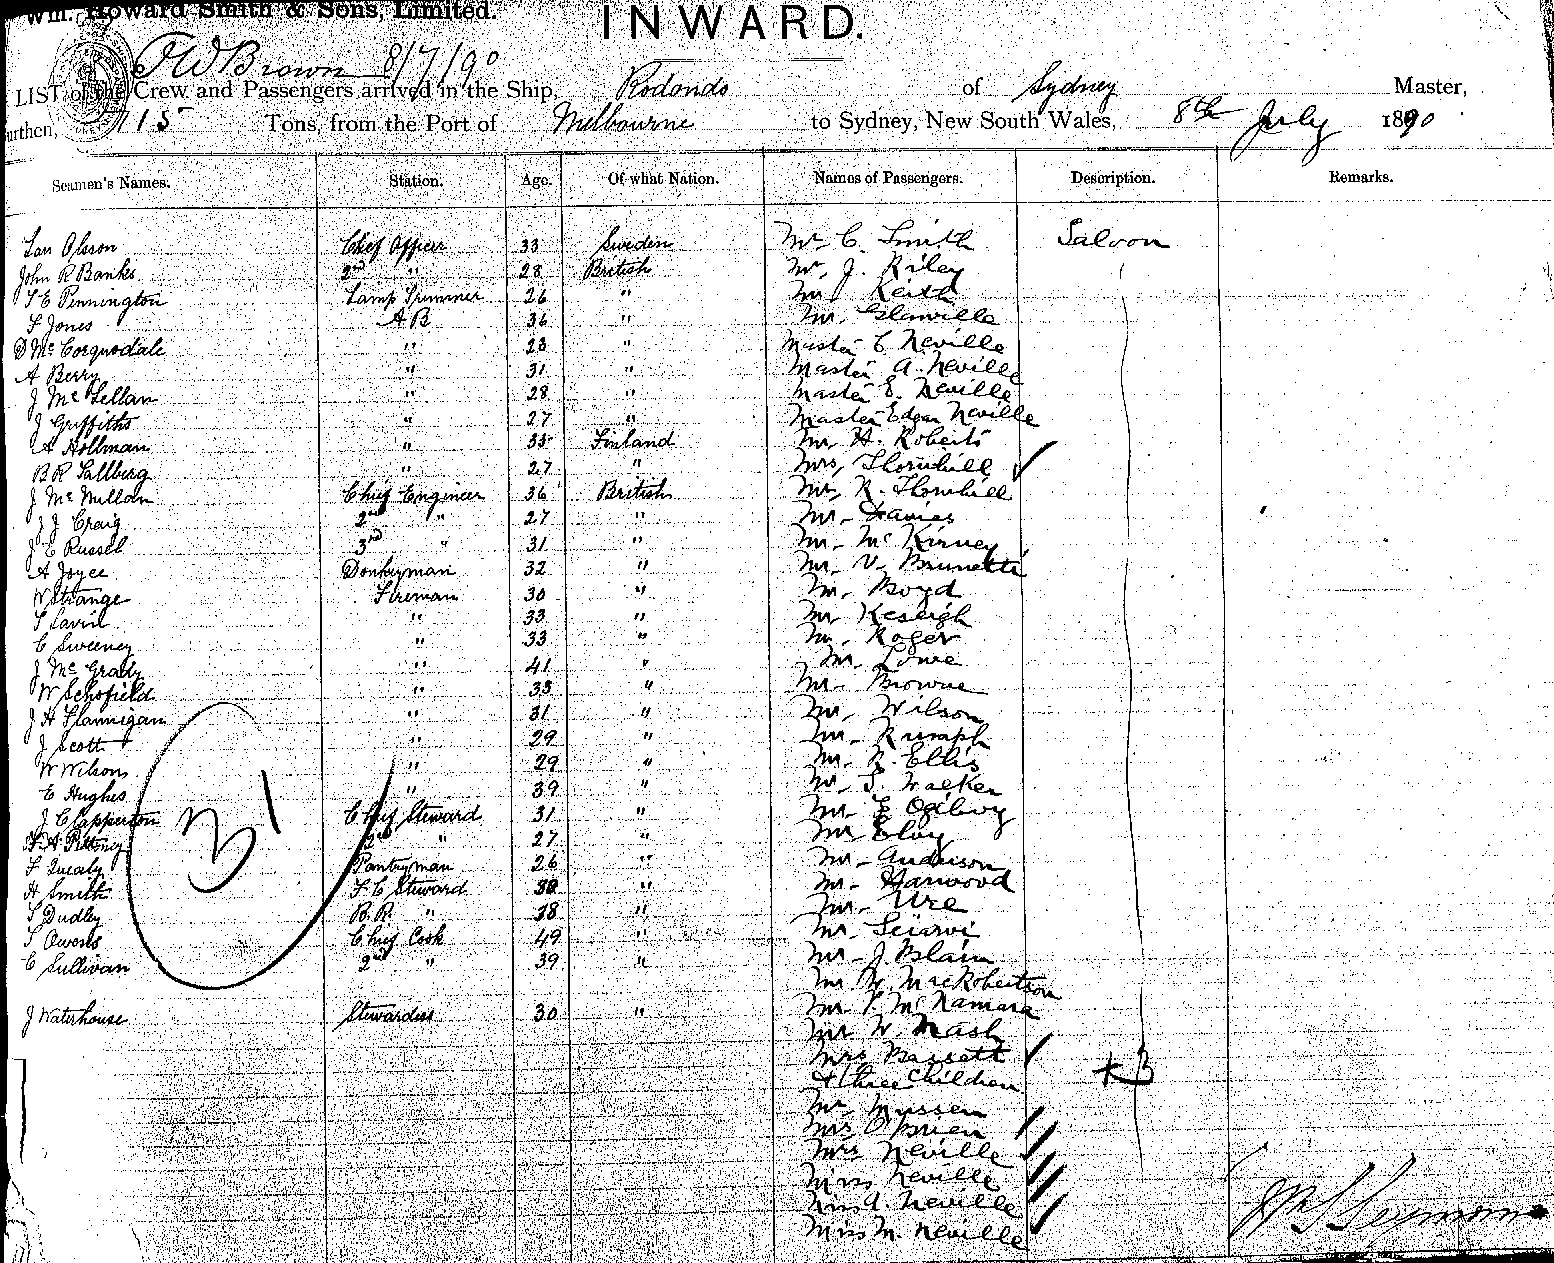 Wm. Howard Smith & Sons, Limited.
INWARD.
8/7/90
LIST of the Crew and Passengers arrived in the Ship, Rodondo of Sydney Master,
urthen, 1115 Tons, from the Port of Melbourne to Sydney, New South Wales, 8th July 1890
Seamen's Names. Station. Age. Of what Nation. Names of Passengers. Description. Remarks.
Lars Olsson Chief Officer 33 Sweden Mr C. Smith Saloon
John R Banks 2nd " 28 British Mr J. Riley
Pennington Lamp Trimmer 26 " Mr Keith
Jones A B 36 " Mr. Glanville
D McCorquodale " 23 " Master C Neville
A Berry " 31 " Master A. Neville
J McLellan " 28 " Master E. Neville
J Griffiths " 27 " Master Edgar Neville
A Hollman " 35 Finland Mr H. Roberts
B R Sallberg " 27 " Mrs Thornhill
J McMillan Chief Engineer 36 British Mr R. Thornhill
J J Craig 2nd " 27 " Mr Davies
J E Russell 3rd " 31 " Mr Mc Kirney
A Joyce Donkeyman 32 " Mr V. Brunetti
W Strange Fireman 30 " Mr Boyd
33 " Mr Keseigh
C Sweeney " 33 " Mr Roger
J McGrady " 41 " Mr Lowe
W Schofield " 33 " Mr Browne
J H Flannigan " 31 " Mr Wilson
J Scott " 29 " Mr Rumph
W Wilson " 29 " Mr R. Ellis
E Hughes " 39 " Mr S. Walker
J Clapperson Chief Steward 31 " Mr E Ogilvy
2nd " 27 " Mr
Quealy Pantryman 26 " Mr Anderson
H Smith F C Steward " Mr Harwood
Dudley B.R. " 18 " Mr Ure
Owens Chief Cook 49 " Mr Sciarvi
C Sullivan 2nd " 39 " Mr J. Blain
31
Mr MacRobertson
J Waterhouse Stewardess 30 " Mr P McNamara
Mr W. Nash
Mrs Bassett
+ three children +3
Mr Mussen
Mrs O'Brien
Mrs Neville
Miss Neville
Miss A. Neville
Miss M. Neville